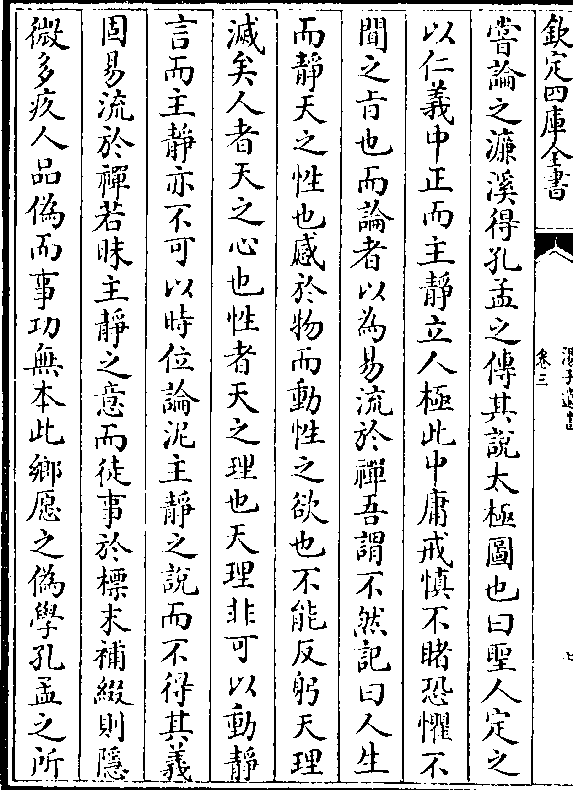 欽定四庫全書
卷三
嘗論之濂溪得孔孟之傳其說太極圖也曰聖人定之
以仁義中正而主靜立人極此中庸戒慎不睹恐懼不
聞之㫖也而論者以為易流於禪吾謂不然記曰人生
而靜天之性也感於物而動性之欲也不能反躬天理
滅矣人者天之心也性者天之理也天理非可以動靜
言而主靜亦不可以時位論泥主靜之說而不得其義
固易流於禪若昧主靜之意而徒事於標末補綴則隱
微多疚人品偽而事功無本此鄉愿之偽學孔孟之所